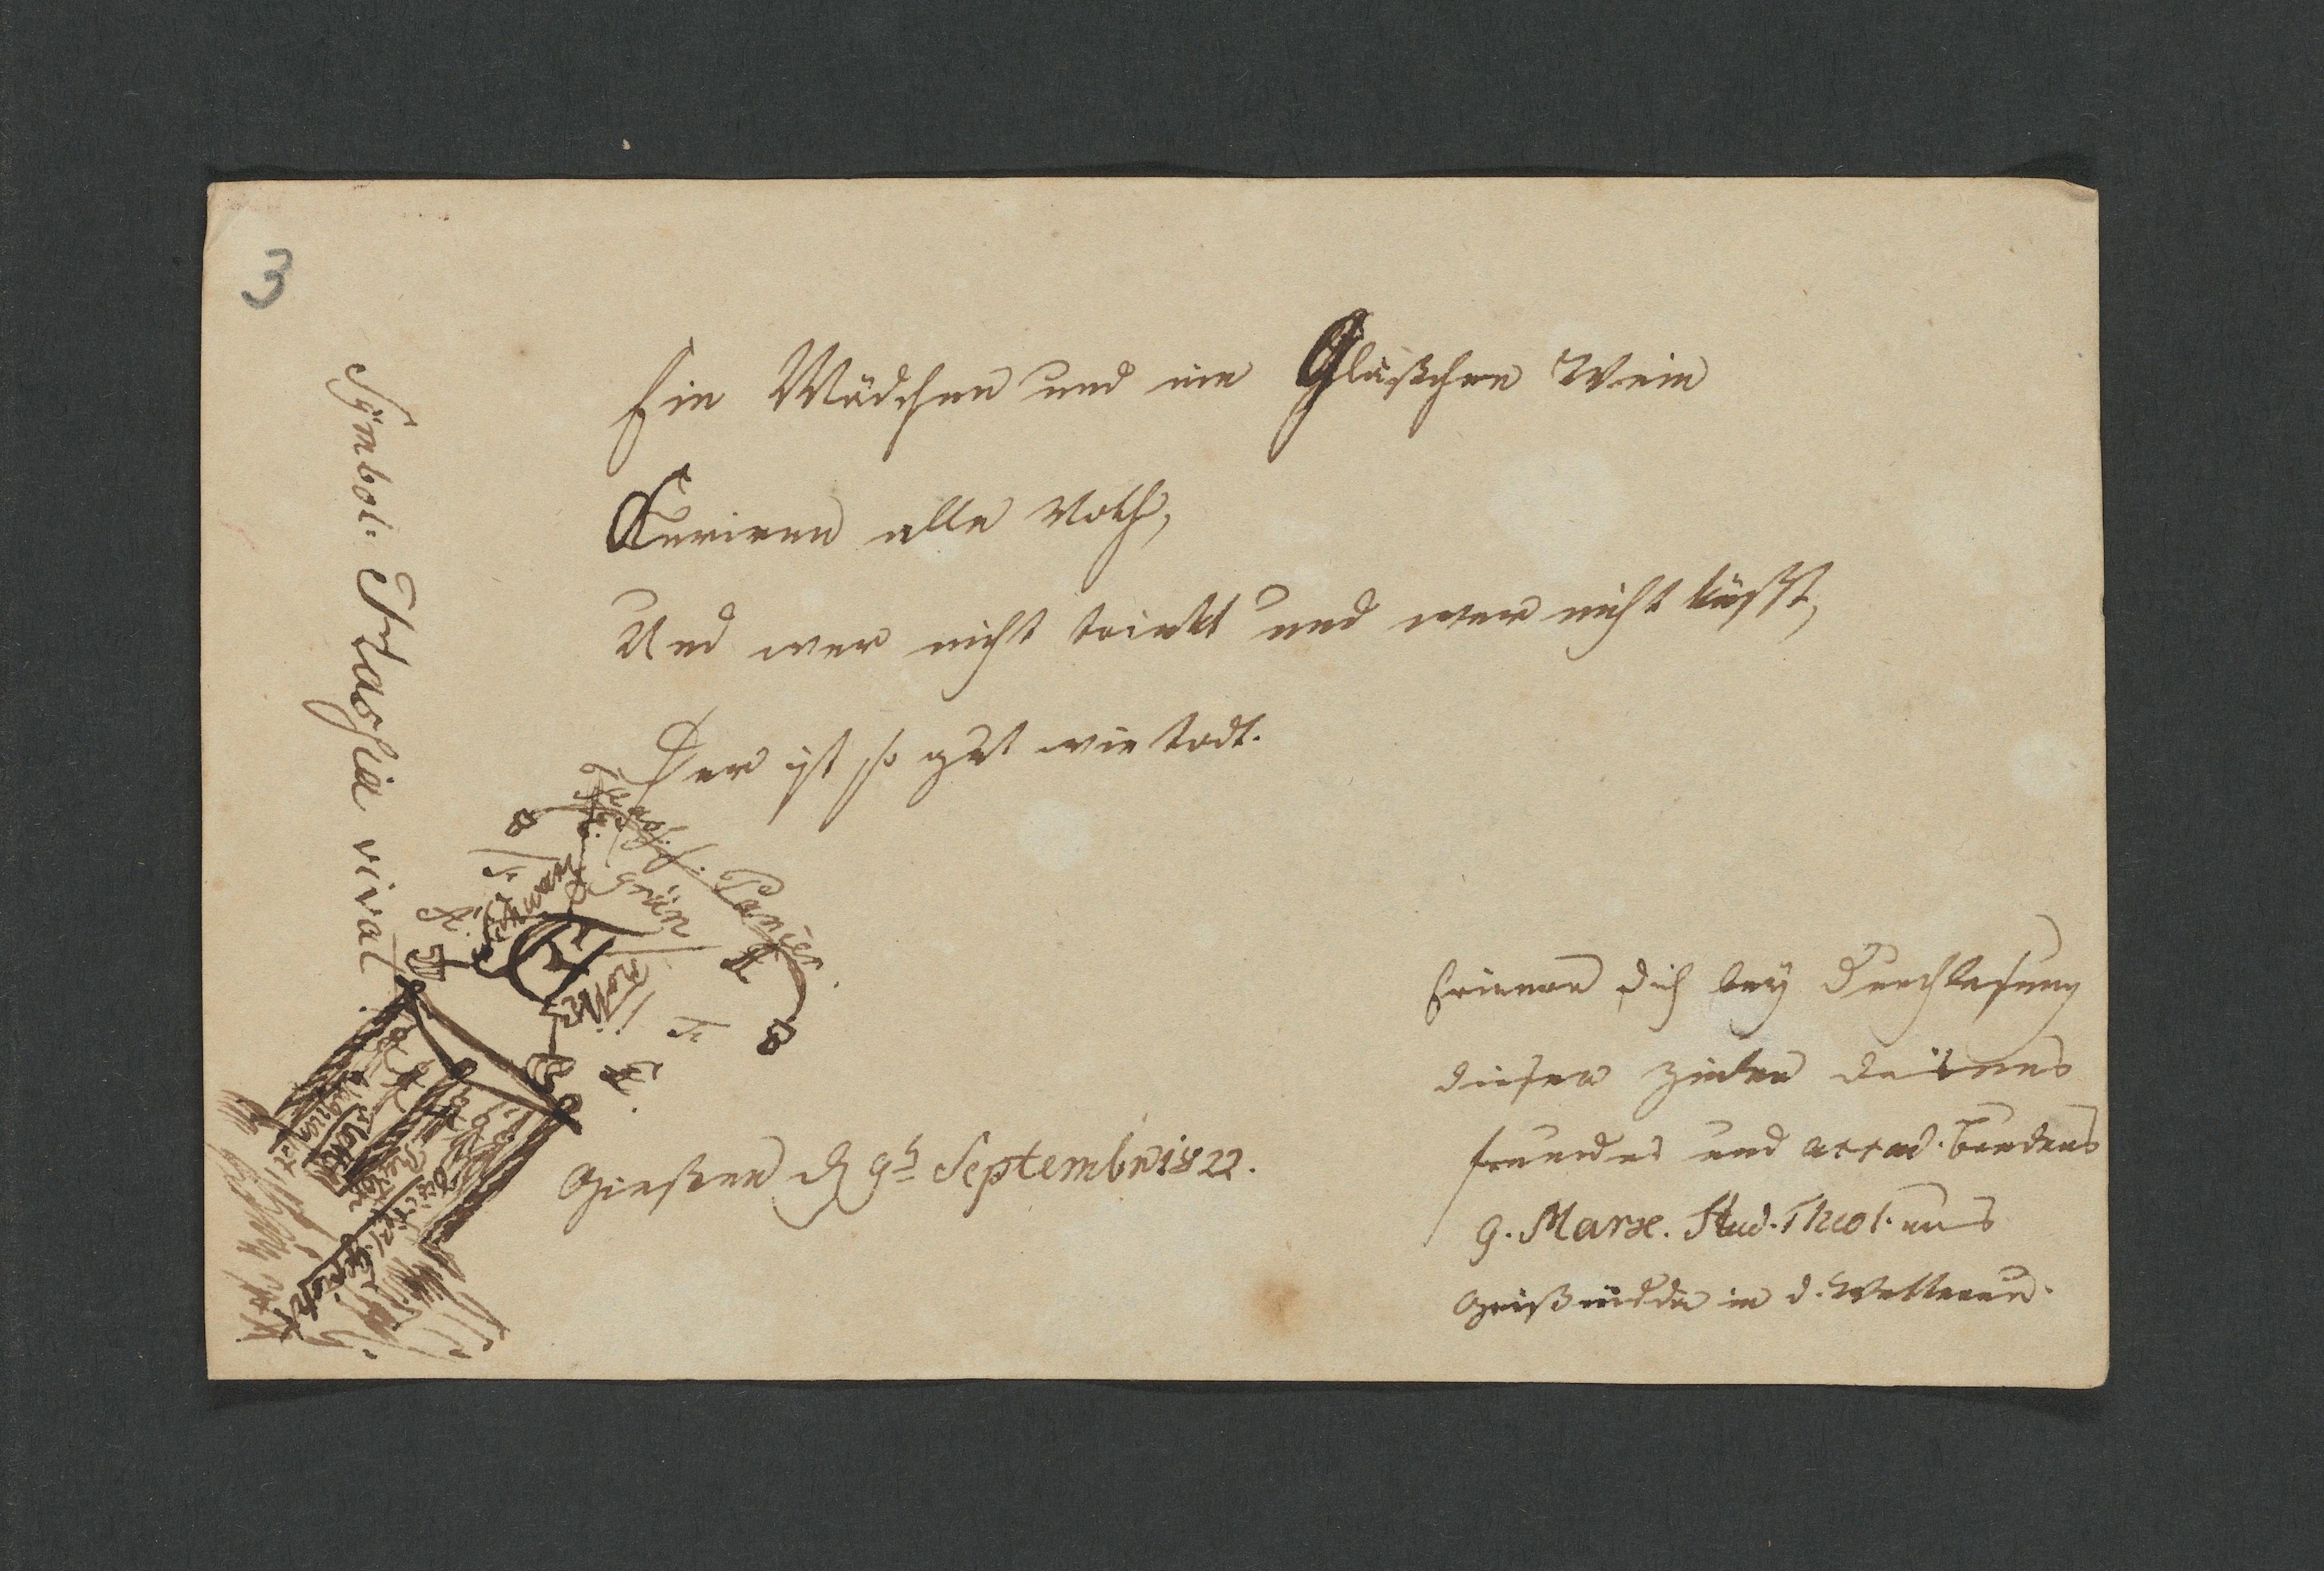 3
Symbol. Hassia vivat!
Ein Mädchen und ein Gläßchen Wein
Kuriren alle Noth,
Und wer nicht trinkt und wer nicht küßt,
Der ist so gut wie todt.
grün
roth
Gießen d 9t Septembr 1822.
Erinnere dich bey Durchlesung
dieser Zeilen deines
Freundes und accad. Bruders
G. Marx. Stud. Theol. aus
Geißnidda in d. Wetterau.